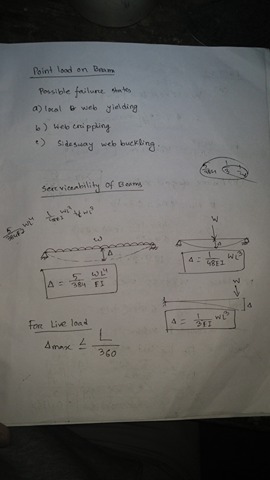 Point load on Beams
Possible failure states
a) local web yielding
b) Web crippling
c) Sidesway web buckling.
Serviceability of Beams
W
Δ
Δ = 5/384 WL⁴/EI
W
Δ
Δ = 1/48EI WL³
W
Δ
Δ = 1/3EI WL³
For Live load
Δmax ≤ L/360